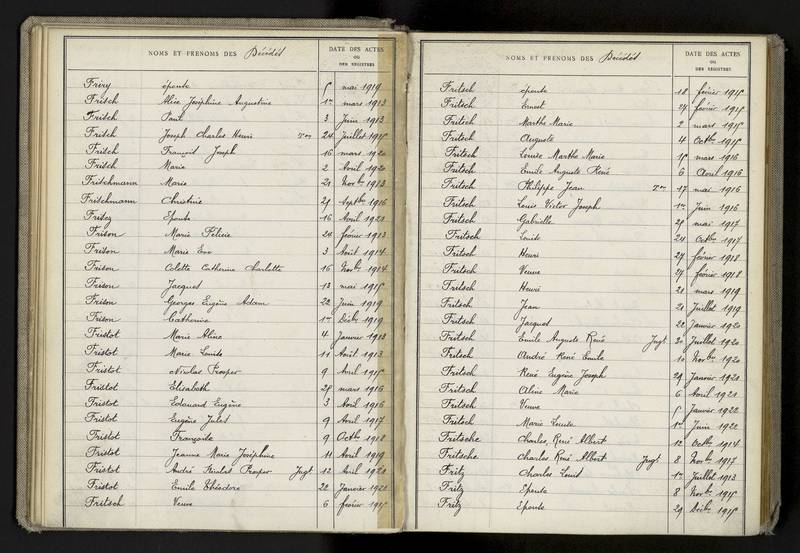 NOMS ET PRENOMS DES Décédés
DATE DES ACTES
OU
DES REGISTRES
Friry épouse 5 mai 1919
Frisch Alice Joséphine Augustine 1er mars 1913
Frisch Paul 3 Juin 1913
Frisch Joseph Charles Henri Ton 24 Juillet 1915
Frisch François Joseph 16 mars 1920
Frisch Marie 2 Avril 1920
Frischmann Marie 21 Novbre 1913
Frischmann Christine 29 Septbre 1916
Frisez Epouse 16 Avril 1921
Frison Marie Félicie 24 février 1913
Frison Marie Eve 3 Août 1914
Frison Colette Catherine Charlotte 16 Novbre 1914
Frison Jacques 13 mai 1915
Frison Georges Eugène Adam 22 Juin 1919
Frison Catherine 1er Décbre 1919
Fristot Marie Aline 4 Janvier 1913
Fristot Marie Louise 11 Août 1913
Fristot Nicolas Prosper 9 Avril 1915
Fristot Elisabeth 25 mars 1916
Fristot Edouard Eugène 3 Avril 1916
Fristot Eugène Jules 9 Avril 1917
Fristot Françoise 9 Octbre 1918
Fristot Jeanne Marie Joséphine 11 Avril 1919
Fristot André Nicolas Prosper Jugt 12 Avril 1920
Fristot Emile Théodore 22 Janvier 1921
Fritsch Veuve 6 février 1915
NOMS ET PRENOMS DES Décédés
DATE DES ACTES
OU
DES REGISTRES
Fritsch épouse 18 février 1915
Fritsch Ernest 27 février 1915
Fritsch Marthe Marie 2 mars 1915
Fritsch Auguste 4 Octbre 1915
Fritsch Louise Marthe Marie 15 mars 1916
Fritsch Emile Auguste René 6 Avril 1916
Fritsch Philippe Jean Ton 17 mai 1916
Fritsch Louis Victor Joseph 1er Juin 1916
Fritsch Gabrielle 29 mai 1917
Fritsch Louise 24 Octbre 1917
Fritsch Henri 27 février 1918
Fritsch Veuve 27 février 1918
Fritsch Henri 21 mars 1919
Fritsch Jean 21 Juillet 1919
Fritsch Jacques 22 Janvier 1920
Fritsch Emile Auguste René Jugt 20 Juillet 1920
Fritsch André René Emile 10 Novbre 1920
Fritsch René Eugène Joseph 29 Janvier 1921
Fritsch Aline Marie 6 Avril 1921
Fritsch Veuve 5 Janvier 1922
Fritsch Marie Louise 1er Juin 1922
Fritsche Charles René Albert 12 Octbre 1914
Fritsche Charles René Albert Jugt 8 Novbre 1917
Fritz Charles Louis 1er Juillet 1913
Fritz Epouse 8 Novbre 1915
Fritz Epouse 29 Décbre 1915